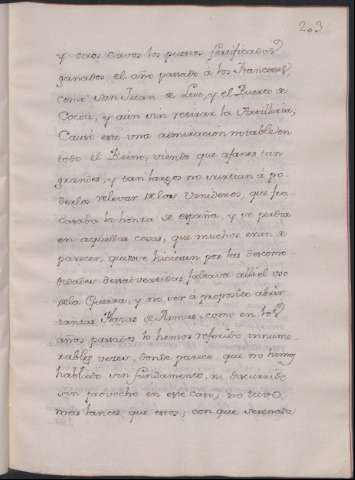 203
y otros varios los puestos fortificados
ganados el año passado a los Franceses,
como San Juan de Luz, y el Puerto de
Cocoa, y aun sin retirar la Artilleria,
Causò esto una admiracion notable en
todo el Reino, viendo que afanes tan
grandes, y tan largos no vastian à po-
derlos relevar de los venideros, que fra-
casaba la honra de españa, y se perdia
en aquellas cosas, que muchos eran de
parecer, que se hicieron por las
faltava alli el uso
de la Guerra, y no ser a proposito abrir
tantas Plazas de Armas, como en los
años passados lo hemos referido innume-
rables veces, donde parece, que no hemos
hablado sin fundamento, ni discurrido
sin provecho en este caso, no tuvo
mas lances que estos; con que